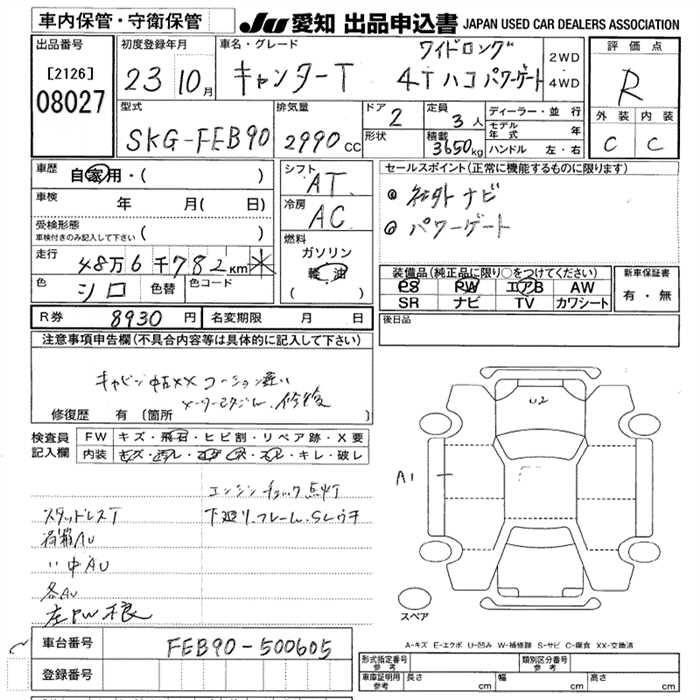 車内保管・守衛保管
JU 愛知 出品申込書 JAPAN USED CAR DEALERS ASSOCIATION
出品番号
[2126]
08027
初度登録年月
23 10月
車名・グレード
ワイドロング
キャンターT 4Tハコ パワーゲート
2WD
4WD
評価点
R
外装 内装
C C
型式
SKG-FEB90
排気量
2990 CC
ドア 2
形状
定員 3人
積載 3650kg
ディーラー・並行
モデル年式 年
ハンドル 左・右
車歴
自家用・( )
車検 年 月( 日)
受検形態
車検付きのみ記入して下さい ( )
走行
48万6千782KM
色 シロ 色替 色コード
シフト AT
冷房 AC
燃料
ガソリン
軽油
( )
セールスポイント(正常に機能するものに限り)
社外ナビ
パワーゲート
装備品(純正品に限り○をつけてください)
PS PW エアB AW
SR ナビ TV カワシート
新車保証書
有・無
後日品
R券 8930円 名変期限 月 日
注意事項申告欄(不具合内容等は具体的に記入して下さい)
修復歴 有 [箇所 ]
検査員記入欄
FW キズ・飛石・ヒビ割・リペア跡・X要
内装 キズ・汚レ・コゲ・穴・スレ・キレ・破レ
エンジンチェック点灯
スタッドレスT
下廻り、フレーム、SLサチ
荷箱AU
〃中AU
各AU
左PW不良
U2
A1
スペア
A-キズ E-エクボ U-凹み W-補修跡 S-サビ C-腐食 XX-交換済
車台番号 FEB90-500605
登録番号
形式指定番号 参考
類別区分番号 参考
車庫証明用 参考
長さ cm 幅 cm 高さ cm